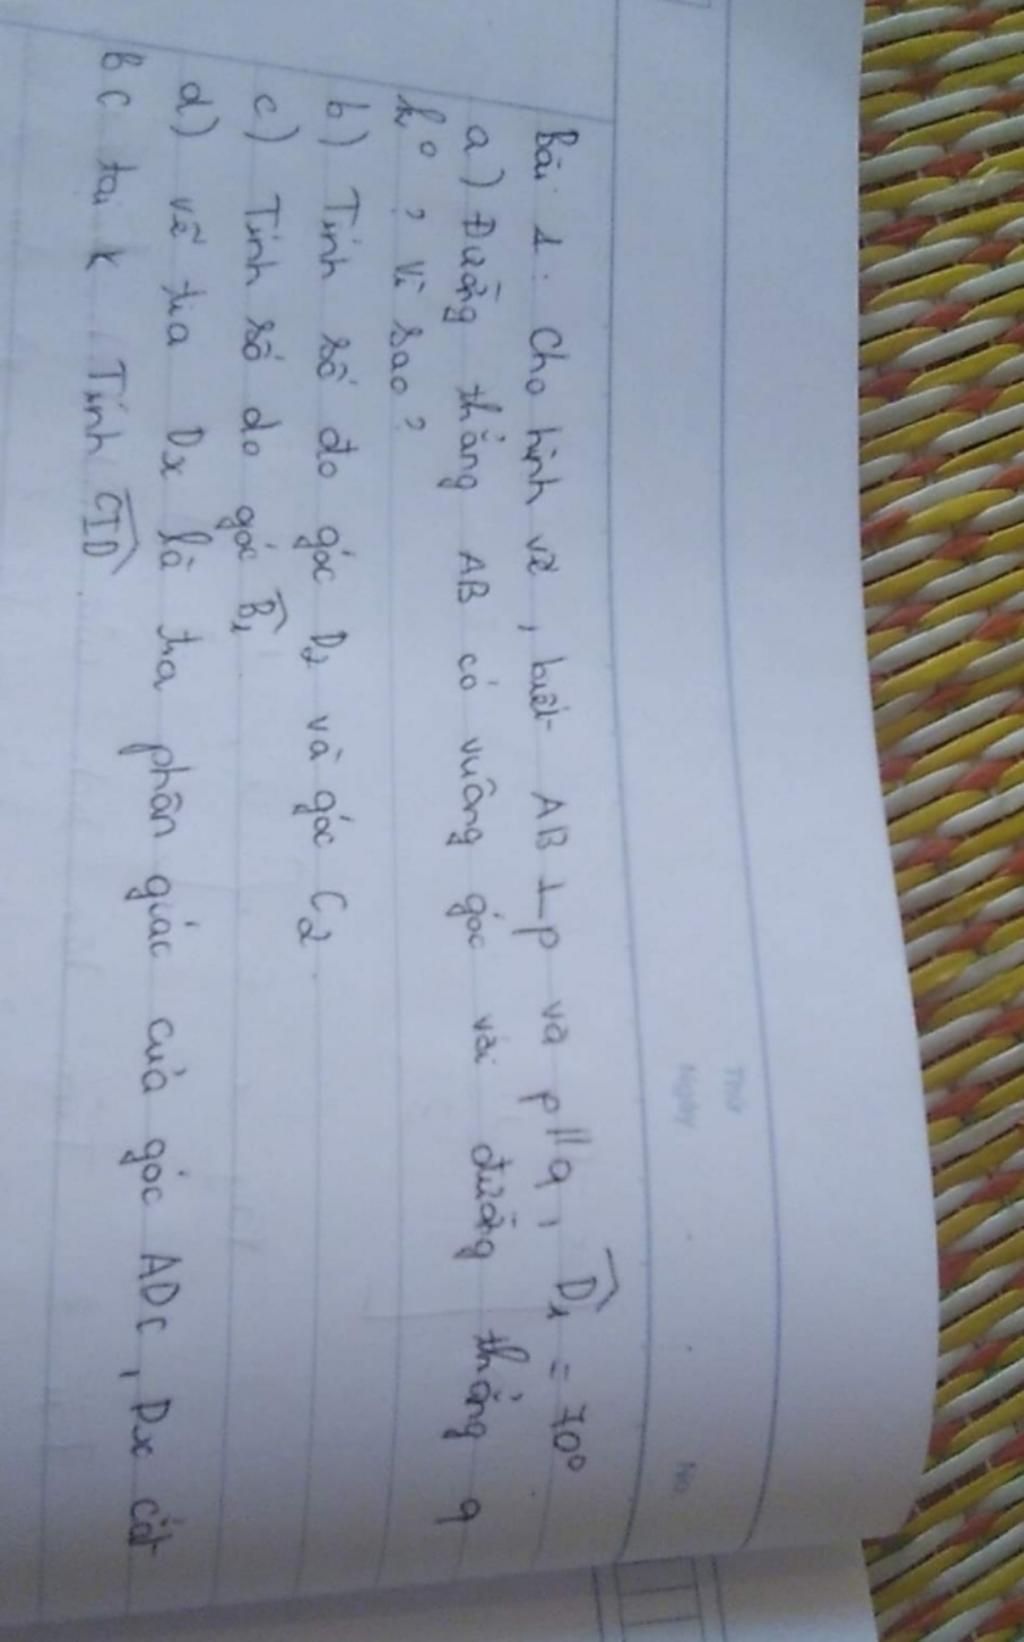 Thứ
Ngày
No.
Bài 1: Cho hình vẽ, biết AB ⊥ p và p // q, D̂₁ = 70°
a) Đường thẳng AB có vuông góc với đường thẳng q
k°, vì sao?
b) Tính số đo góc D₂ và góc C₂.
c) Tính số do góc B̂₁
d) vẽ tia Dx là tia phân giác của góc ADC, Dx cắt
BC tại K Tính CID